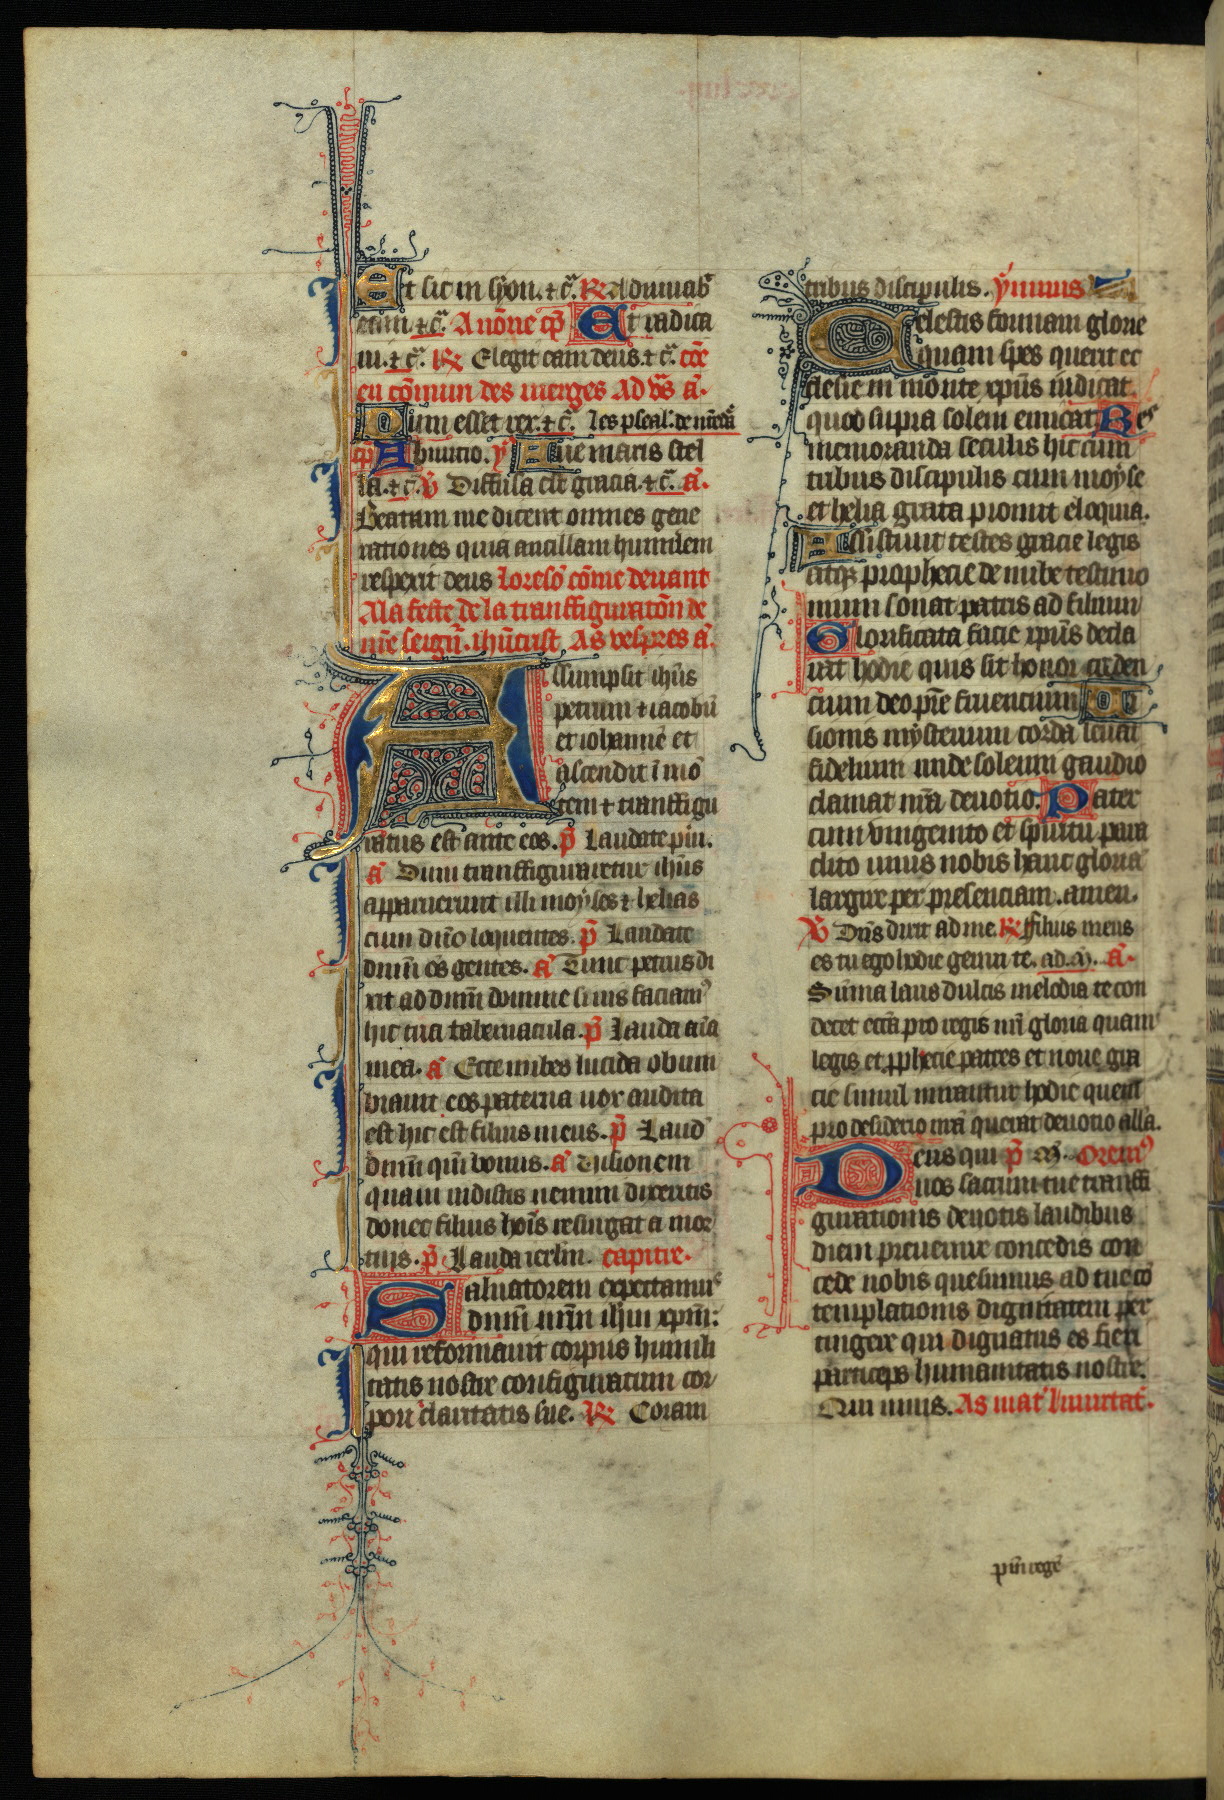 Et sic in syon. ⁊ c̃. R̃ Adiuuab̃
eam ⁊ c̃. A nõne cp̃ Et radica
ui. ⁊ c̃. R̃ Elegit eam deus. ⁊ c̃.
cõmun des uierges Ad vs̃ ã.
Dum esset rex. ⁊ c̃. les pseal.
cp̃ Ab inicio. y̾ Aue maris stel
la. ⁊ c̃. v̾ Diffusa est gracia. ⁊ c̃. ã.
Beatam me dicent omnes gene
rationes quia ancillam humilem
respexit deus loreso᷃ cõme deuant
A la feste de la transfiguratõn de
nr̃e seign̾. ihũcrist As vespres ã.
Assumpsit ihũs
petrum ⁊ iacobũ
et iohannẽ et
ascendit ĩ mõ
tem ⁊ transfigu
ratus est ante eos. p̃ Laudate pũi.
ã Dum transfiguraretur ihũs
apparuerunt illi moyses ⁊ helias
cum dño loquentes. p̃ Laudate
dnũm oẽs gentes. ã Tunc petrus di
xit ad dnũm domine si uis faciam᷒
hic tria tabernacula. p̃ Lauda aĩa
mea. ã Ecce nubes lucida obum
brauit eos paterna uox audita
est hic est filius meus. p̃ Laud̾
dnũm qm̃ bonus. ã Uisionem
quam uidistis nemini dixeritis
donec filius hoĩs resurgat a mor
tuis. p̃ Lauda ierlm̃. capitre.
Saluatorem expectamus
dnũm nr̃m ihũm xp̃m:
qui reformauit corpus humili
tatis nostre configuratum cor
pori claritatis sue. R̃ Coram
tribus discipulis. ymnus
Celestis formam glorie
quam spes querit ec
clesie in monte xp̃us indicat
quod supra solem emicat Res
memoranda seculis hic cum
tribus discipulis cum moyse
et helia grata promit eloquia.
Assistunt testes gracie legis
atq̃ prophecie de nube testimo
nium sonat patris ad filium
Glorificata facie xp̃us decla
rat hodie quis sit honor creden
cium deo pr̃e fruencium Ui
sionis mysterium corda leuat
fidelium unde solenni gaudio
clamat nr̃a deuotio. Pater
cum vnigenito et spiritu para
clito unus nobis hanc gloriã
largire per presenciam. amen.
v̾ Dñs dixit ad me. R̃ filius meus
es tu ego hodie genui te. ad. m̃. ã.
Sũma laus dulcis melodia te con
decet xp̃e pro regis nr̃i gloria quam
legis et ꝓphecie patres et noue gra
cie simul mirantur hodie quem
pro desiderio nr̃a querat deuotio all̃a.
Deus qui p̃ M̃. Orem᷒
nos sacram tue transfi
gurationis deuotis laudibus
diem preuenire concedis con
cede nobis quesumus ad tue cõ
templationis dignitatem per
tingere qui dignatus es fieri
particeps humanitatis nostre.
Qui uiuis. As mat̾ Inuitat̾.